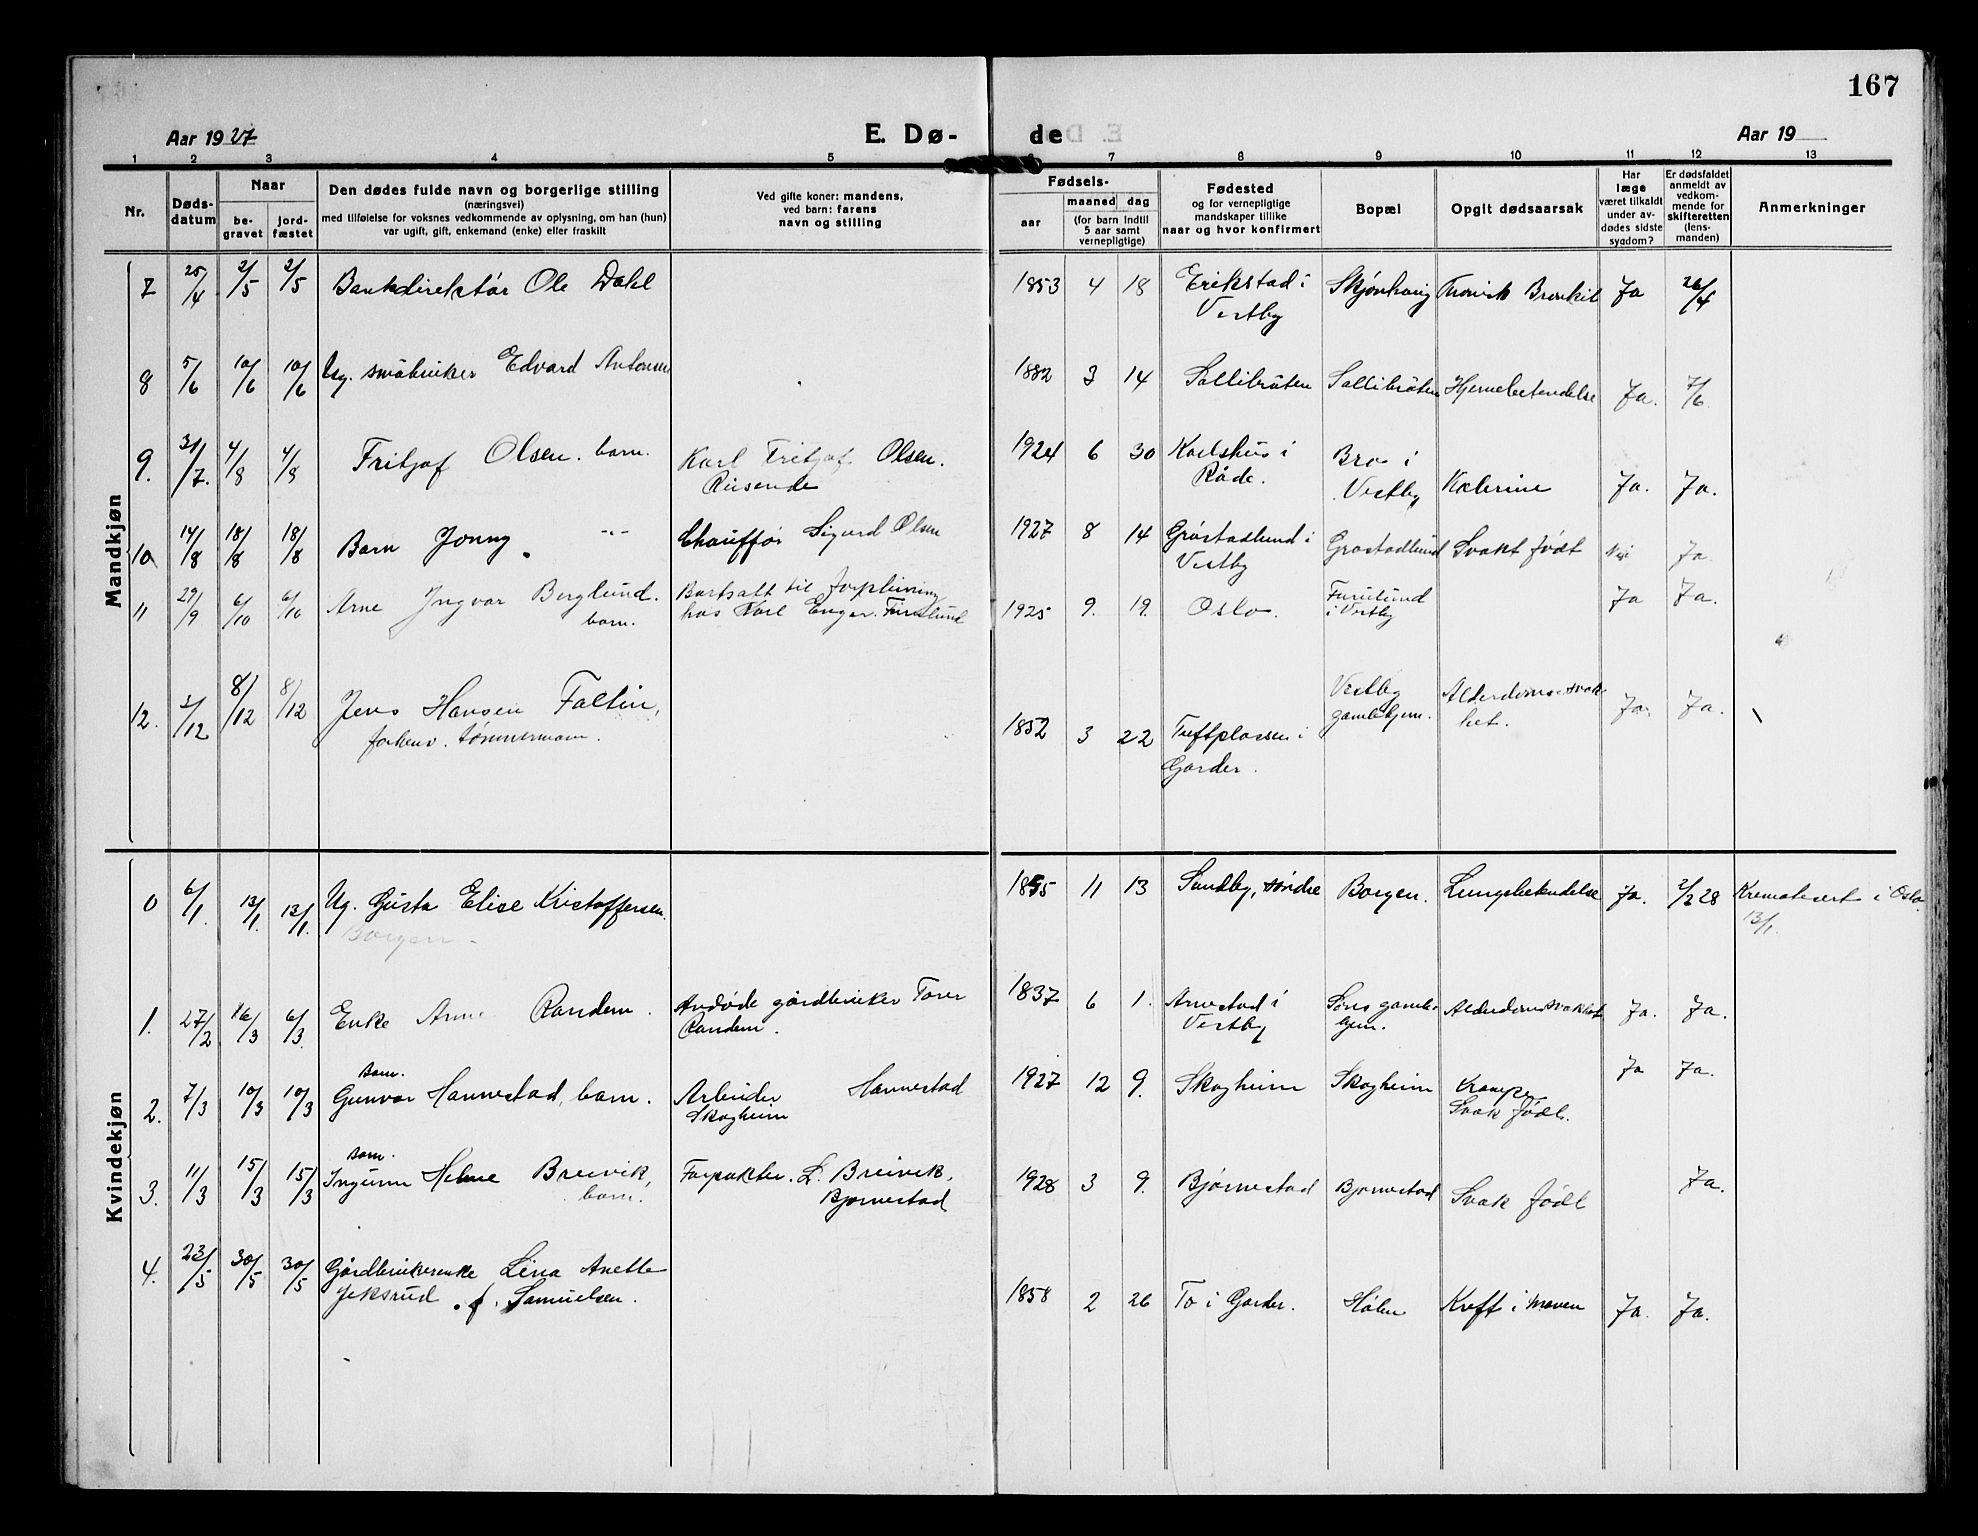 167
Aar 1927
E. Dø-
de
Aar 19
1 2 3 4 5 6 7 8 9 10 11 12 13
Nr.
Døds-
datum
Naar
be-
gravet
jord-
fæstet
Den dødes fulde navn og borgerlige stilling
(næringsvei)
med tilføielse for voksnes vedkommende av oplysning, om han (hun)
var ugift, gift, enkemand (enke) eller fraskilt
Ved gifte koner: mandens,
ved barn: farens
navn og stilling
Fødsels-
aar
maaned dag
(for barn indtil
5 aar samt
vernepligtige)
Fødested
og for vernepligtige
mandskaper tillike
naar og hvor konfirmert
Bopæl
Opgit dødsaarsak
Har
læge
været tilkaldt
under av-
dødes sidste
sygdom?
Er dødsfaldet
anmeldt av
vedkom-
mende for
skifteretten
(lens-
manden)
Anmerkninger
Mandkjøn
7 25/4 2/5 2/5 Bankdirektør Ole Dahl 1853 4 18 Erikstad i
Vestby
Skjønhaug Kronisk Bronkit Ja 26/4
8 5/6 10/6 10/6 Ug. småbruker Edvard Antonsen 1882 3 14 Sollibråten Sollibråten Hjernebetendelse Ja. 7/6
9. 31/7. 4/8 4/8 Fritjof Olsen. barn. Karl Fritjof Olsen.
Reisende
1924 6 30 Karlshus i
Råde.
Bro i
Vestby
Kolerine Ja. Ja.
10 14/8 18/8 18/8 Barn Jonny Chauffør Sigurd Olsen 1927 8 14 Grøstadlund i
Vestby
Grøstadlund Svakt født Nei Ja.
11 29/9 6/10 6/10 Arne Ingvar Berglund.
barn.
Bortsatt til forpleining
hos Karl Enger. Furulund
1925 9. 19. Oslo.
Furulund
i Vestby
Ja Ja.
12. 2/12 8/12 8/12 Jens Hansen Faltin,
forhenv. tømmermann.
1852 3 22
Tuftplassen i
Garder.
Vestby
gamlehjem.
Alderdomssvak-
het.
Ja. Ja.
Kvindekjøn
0 6/1. 13/1. 13/1. Ug. Gusta Elise Kristoffersen.
Borgen.
1855 11 13 Sundby, søndre Borgen. Lungebetendelse Ja. 2/2 28 Kremat i Oslo
13/1.
1. 27/2 6/3 6/3. Enke Anne Randem. Avdøde gårdbruker Torer
Randem.
1837 6 1. Arnestad i
Vestby
Søns gamle-
hjem.
Alderdomssvakhet Ja. Ja.
2. 7/3 10/3 10/3 Barn.
Gunvor Hannestad, barn. Arbeider Hannestad
Skogheim
1927 12 9. Skogheim Skogheim Krampe
Svak født.
Ja Ja.
3. 11/3 15/3 15/3 Barn.
Ingunn Helene Breivik,
barn.
Forpakter. L. Breivik,
Bjørnestad
1928 3 9. Bjørnestad Bjørnestad Svak født Ja.
4. 23/5 30/5 30/5 Gårdbrukerenke Lina Anette
Jeksrud. f. Samuelsen.
1858 2 26 To i Garder. Hølen Kreft i maven Ja. Ja.